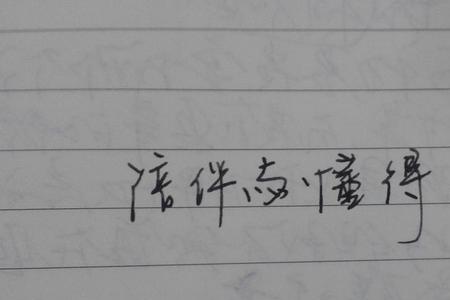 陪伴与懂得